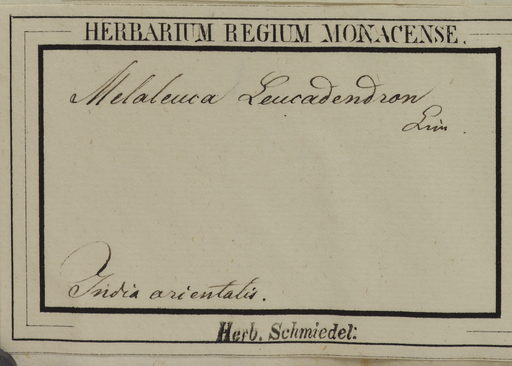 HERBARIUM REGIUM MONACENSE.
Melaleuca Leucadendron
Lin.
India orientalis.
Herb. Schmiedel: